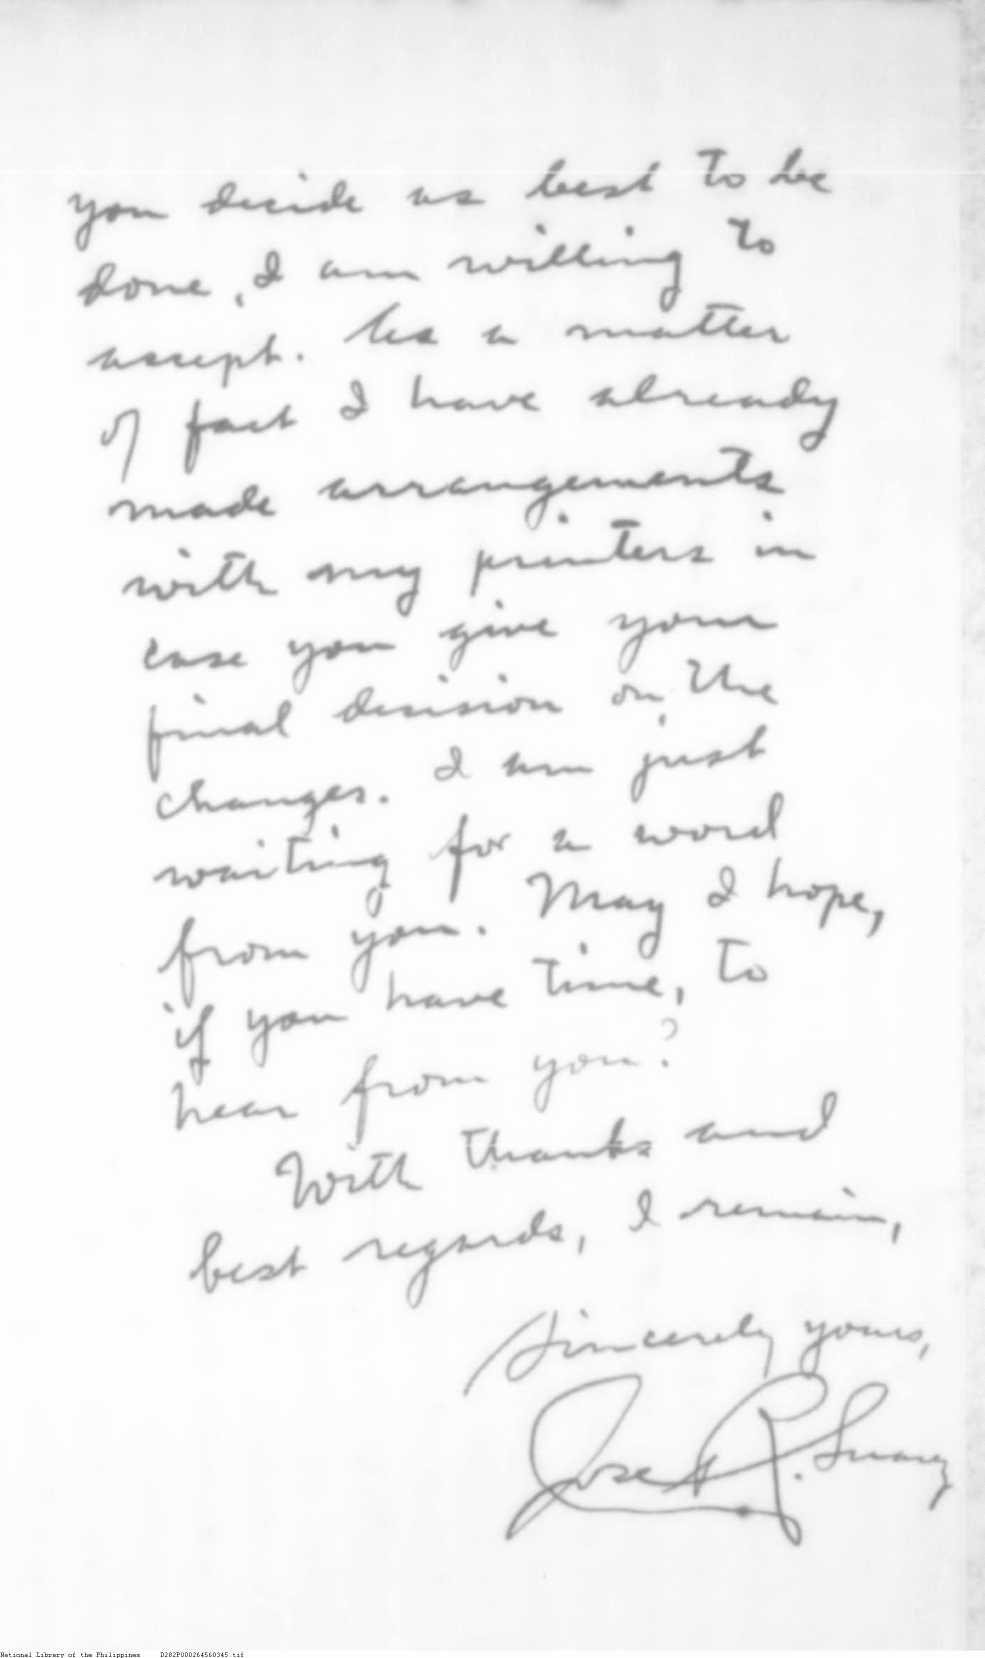 you decide as best to be
done, I am willing to
accept. As a matter
of fact I have already
made arrangements
with my printers in
case you give your
final decision on the
changes. I am just
waiting for a word
from you. May I hope,
if you have time, to
hear from you?
With thanks and
best regards, I remain,
Sincerely yours,
Jose R. Suarez
National Library of the Philippines D282P000264560345.tif